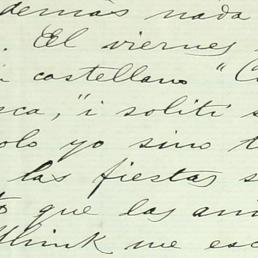 demás nada
. El viernes
castellano "C
sca, "i soliti s
olo yo sino t
las fiestas s
que las ani
Think me esc